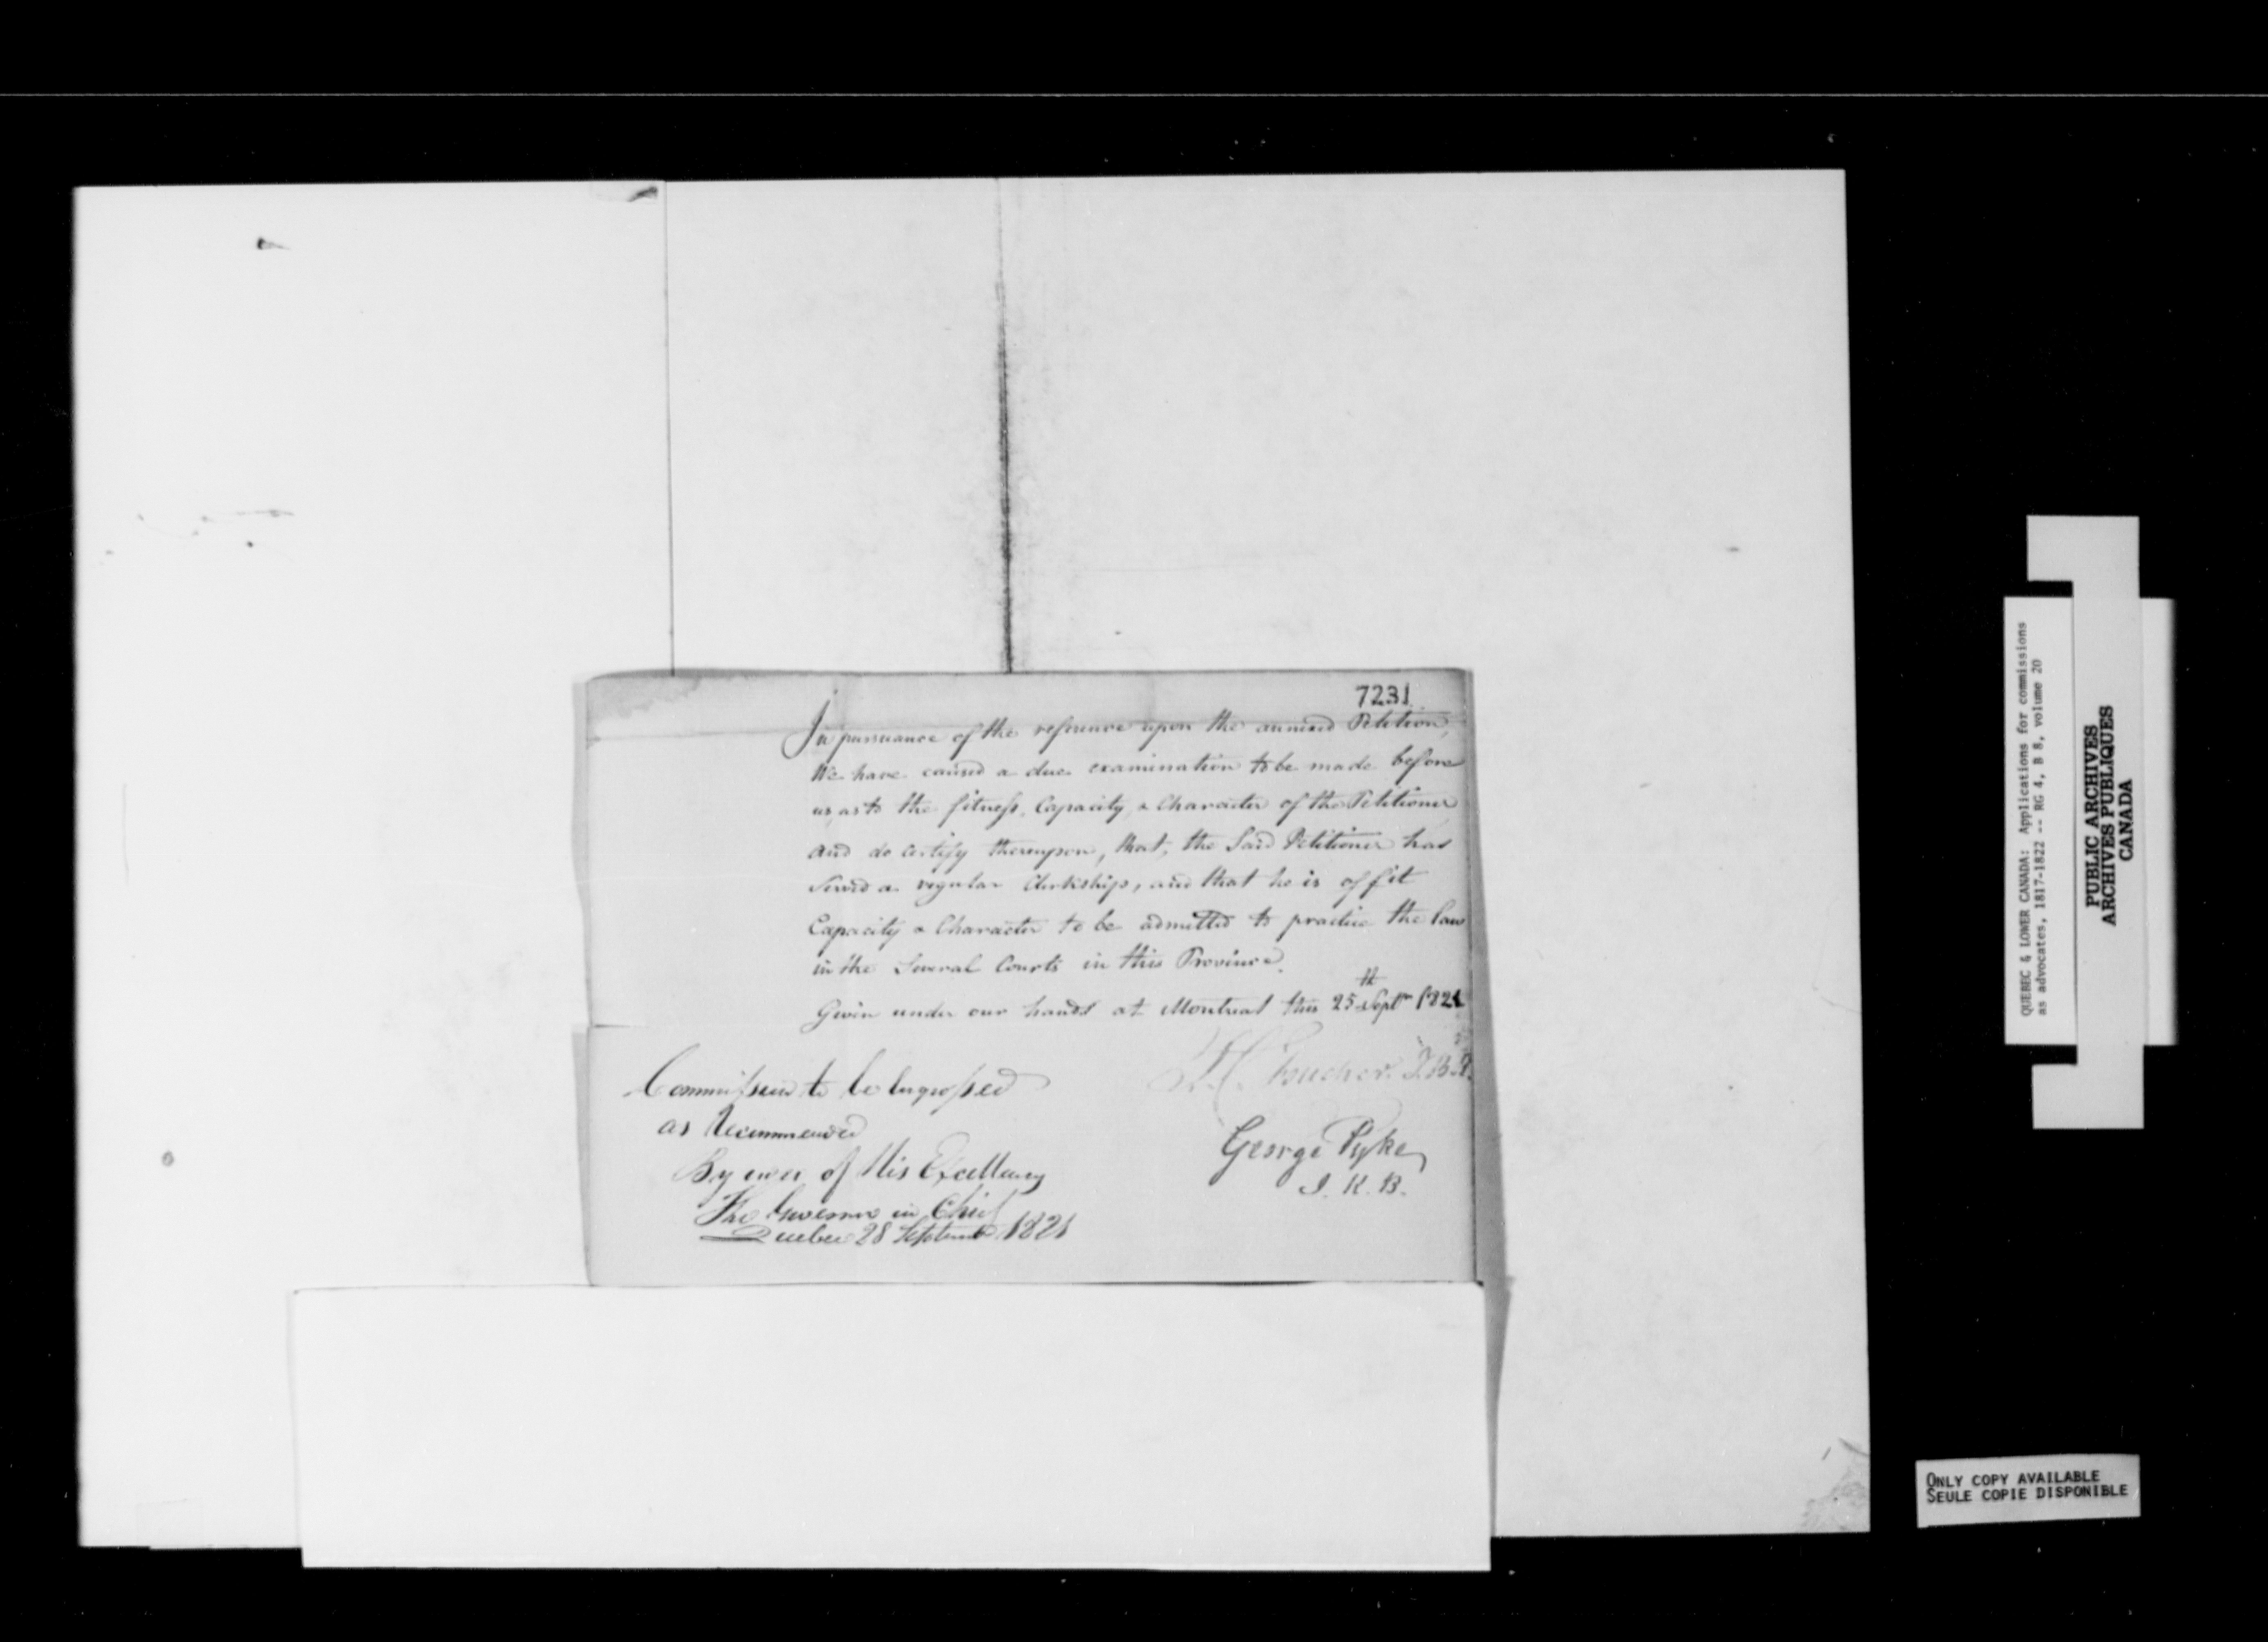 7231
In pursuance of the reference upon the annexed Petition,
We have caused a due examination to be made before
us, as to the fitness, Capacity & Character of the Petitioner
and do certify thereupon, that, the Said Petitioner has
Served a regular Clerkship, and that he is of fit
Capacity & Character to be admitted to practice the law
in the Several Courts in this Province.
Given under our hands at Montreal this 25th Septr 1821
L. C. Foucher. J.B.R.
George Pyke
J. K. B.
Commission to be Engrossed
as Recommended
By order of His Excellency
The Governor in Chief
Quebec 28 September 1821
QUEBEC & LOWER CANADA: Applications for commissions
as advocates, 1817-1822 -- RG 4, B 8, volume 20
PUBLIC ARCHIVES
ARCHIVES PUBLIQUES
CANADA
ONLY COPY AVAILABLE
SEULE COPIE DISPONIBLE